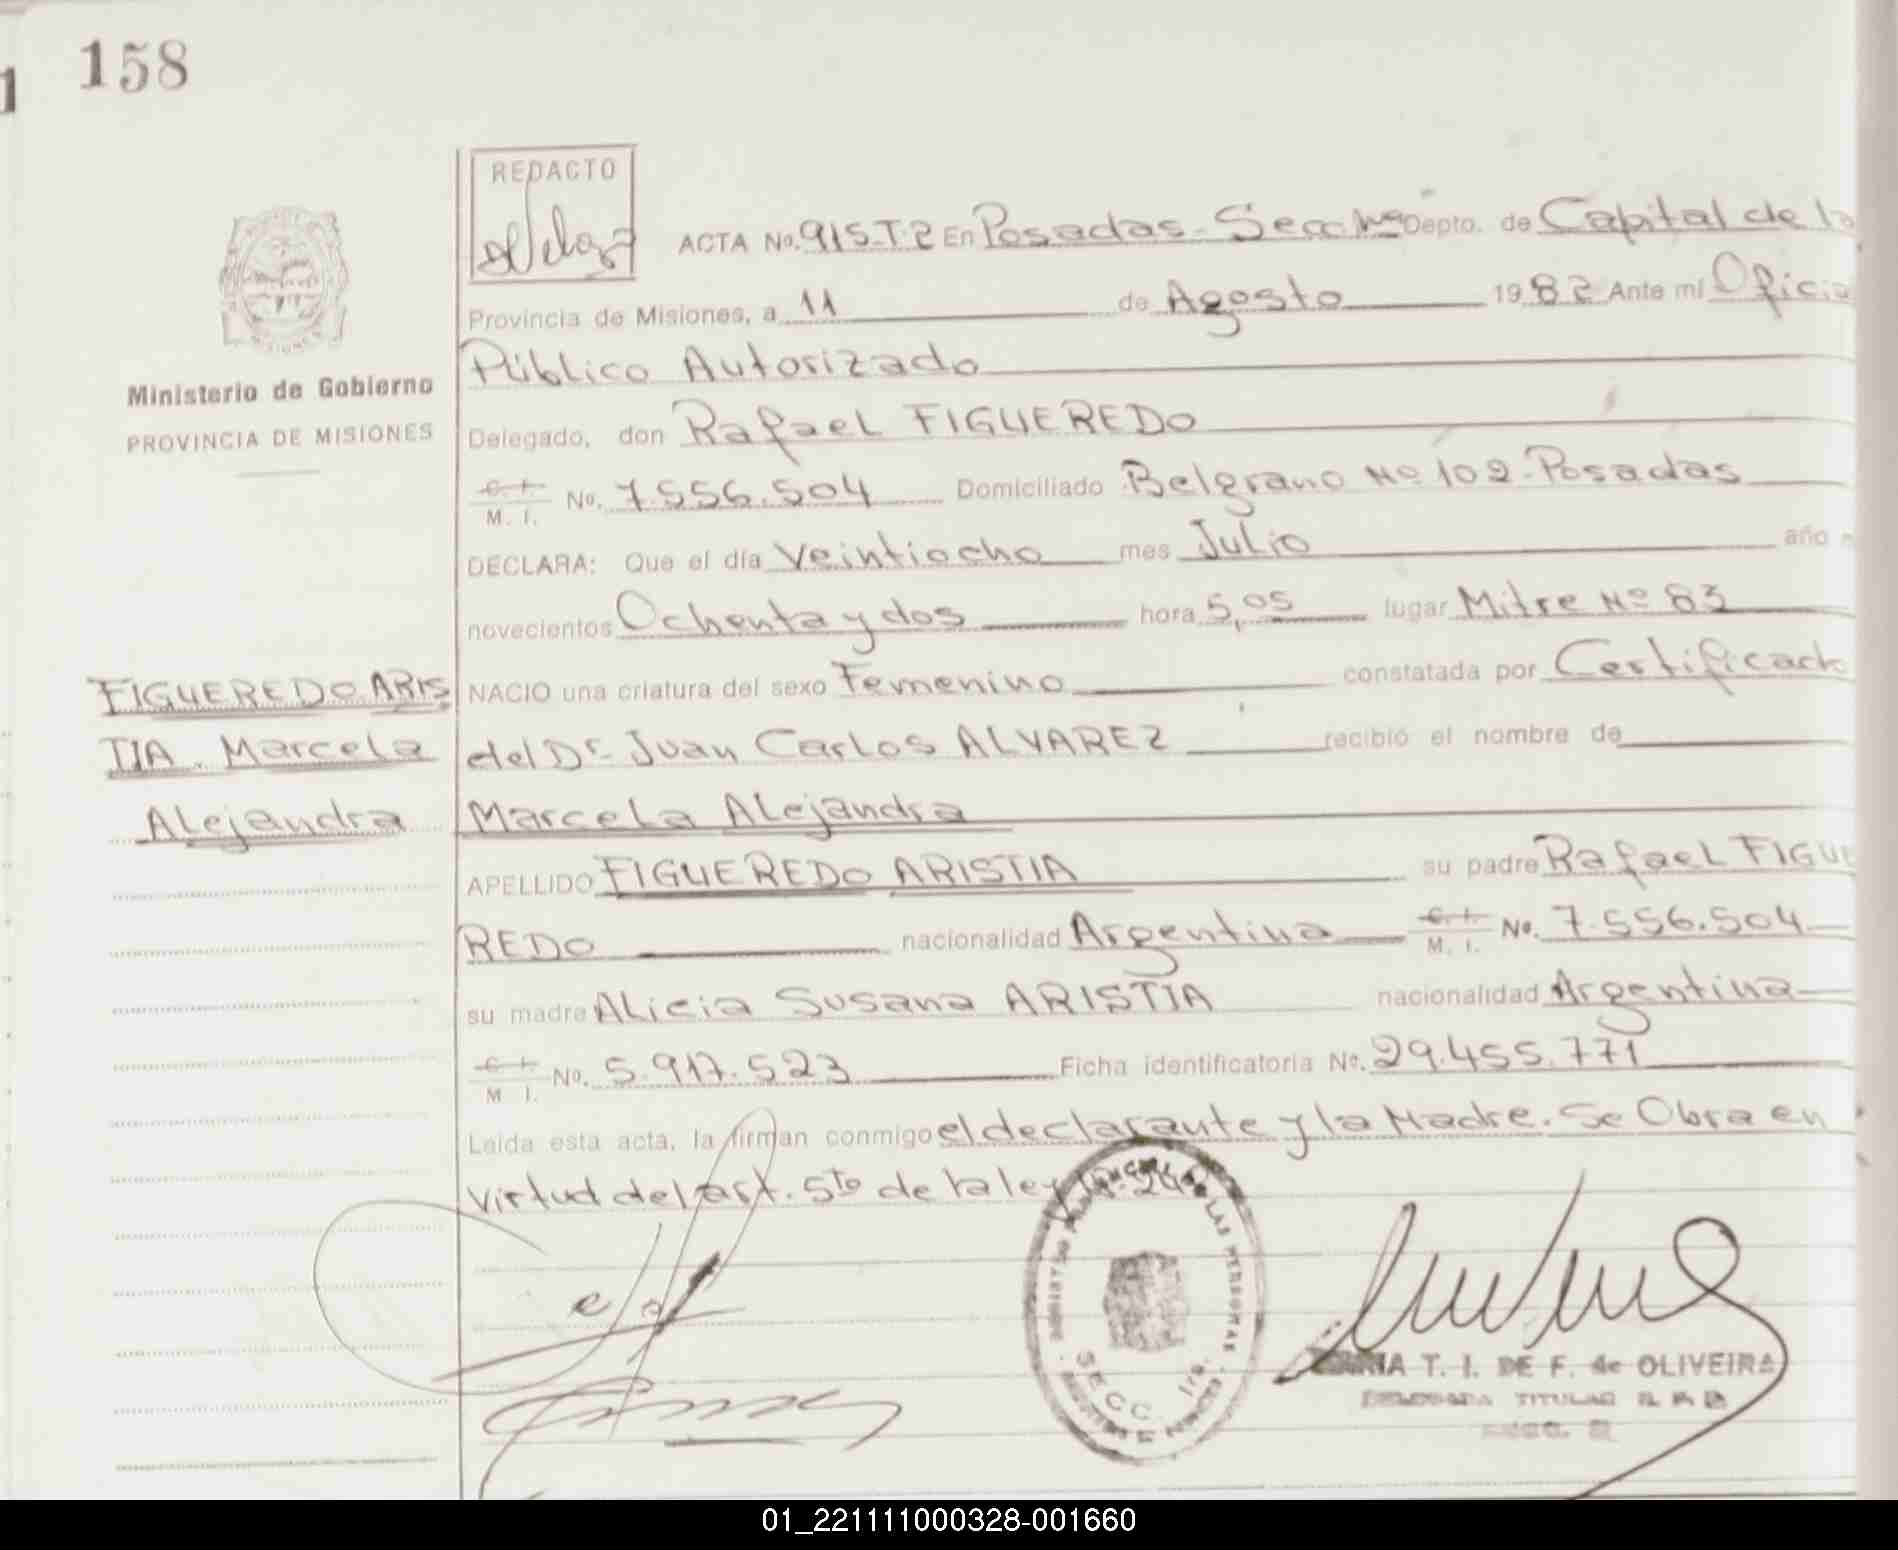 158
1
REDACTO
ACTA No. 915-T.2 En Posadas - Secc 1ra Depto. de Capital de la
Provincia de Misiones, a 11 de Agosto 1982 Ante mí Oficia
Público Autorizado
Delegado, don Rafael FIGUEREDO
C. I.
M. I. No. 7.556.504 Domiciliado Belgrano Nº 102 - Posadas
DECLARA: Que el día Veintiocho mes Julio año
novecientos Ochenta y dos hora 5,05 lugar Mitre Nº 83
NACIO una criatura del sexo Femenino constatada por Certificado
del Dr. Juan Carlos ALVAREZ recibió el nombre de
Marcela Alejandra
APELLIDO FIGUEREDO ARISTIA su padre Rafael FIGUE
REDO nacionalidad Argentina C. I. M. I. No. 7.556.504
su madre Alicia Susana ARISTIA nacionalidad Argentina
C. I.
M. I. No. 5.917.523 Ficha identificatoria No. 29.455.771
Leída esta acta, la firman conmigo el declarante y la Madre. Se Obra en
virtud del art. 5to de la ley
MISIONES
Ministerio de Gobierno
PROVINCIA DE MISIONES
FIGUEREDO ARIS
TIA. Marcela
Alejandra
LAS PERSONAS
SECC. 1ra.
T. I. DE F. de OLIVEIRA
TITULAR
01_221111000328-001660